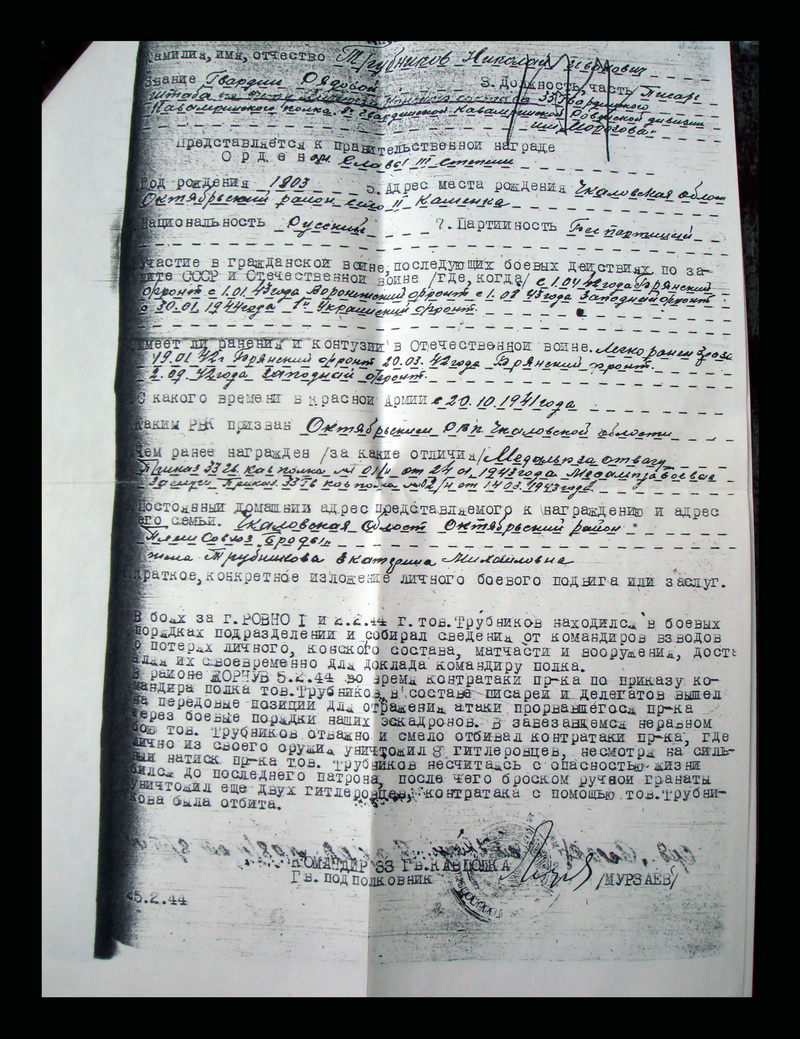 Фамилия, имя, отчество Трубников Николай Иванович
Звание Гвардии Рядовой 3. Должность, часть Писарь
штаба 33 Гвардейского
Кавалерийского полка 8й Гвардейской Кавалерийской Ровенской дивизии
им. Морозова
Представляется к правительственной награде
Орденом Славы III степени
Год рождения 1903 5. Адрес места рождения Чкаловская облас
Октябрьский район село II Каменка
Национальность Русский 7. Партийность Беспартийный
Участие в гражданской войне, последующих боевых действиях по за-
щите СССР и Отечественной войне /где, когда/ с 1.04 42 года Брянский
фронт с 1.01 43 года Воронежский фронт с 1.08 43 года Западный фронт
с 30.01 1944 года 1й Украинский фронт.
Имеет ли ранения и контузии в Отечественной войне. Легко ранен
19.01 42 г Брянский фронт 20.03. 42 года Брянский фронт.
2.09. 42 года Западный фронт.
С какого времени в красной Армии с 20.10.1941 года
каким РВК призван Октябрьским ОВК Чкаловской области
чем ранее награжден /за какие отличия/ Медаль за отвагу
Приказ 33 Гв кав полка № 01/н от 24 01. 1943 года Медаль за боевые
заслуги Приказ 33 Гв кав полка № 02/н от 14 03. 1943 года.
Постоянный домашний адрес представляемого к награждению и адрес
его семьи. Чкаловская област Октябрьский район
Племсовхоз Броды
жена Трубникова Екатерина Михайловна
Краткое, конкретное изложение личного боевого подвига или заслуг.
В боях за г. РОВНО I и 2.2.44 г. тов. Трубников находился в боевых
порядках подразделений и собирал сведения от командиров взводов
о потерях личного, конского состава, матчасти и вооружения, доста
влял их своевременно для доклада командиру полка.
В районе ЖОРНУВ 5.2.44 во время контратаки пр-ка по приказу ко-
мандира полка тов. Трубников в составе писарей и делегатов вышел
на передовые позиции для отражения атаки прорвавшегося пр-ка
через боевые порядки наших эскадронов. В завезавшемся неравном
бою тов. Трубников отважно и смело отбивал контратаки пр-ка, где
лично из своего оружия уничтожил 8 гитлеровцев, несмотря на силь-
ный натиск пр-ка тов. Трубников несчитаясь с опасностью жизни
бился до последнего патрона, после чего броском ручной гранаты
уничтожил еще двух гитлеровцев, контратака с помощью тов. Трубни-
кова была отбита.
КОМАНДИР 33 ГВ. КАВПОЛКА
Гв. подполковник /МУРЗАЕВ/
5.2.44